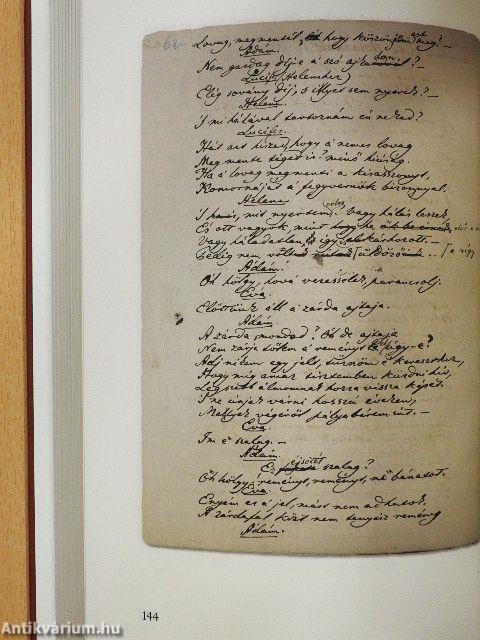 62
Lovag, megmentél, hogy köszönjem azt meg? —
Ádám.
Nem gazdag díj e a szó ajkadról?—
Lucifer (Helenehez)
Elég sovány díj, s illyet sem nyerek?—
Helene.
S mi hálával tartoznám én neked?
Lucifer.
Hát azt hiszed, hogy a nemes lovag
Megmente téged is? minő hiúság.
Ha a lovag megmenti a kisasszonyt,
Komornáját a fegyvernök bizonnyal.
Helene.
S mit nyertem? Vagy hálás leszek
És ott vagyok, mint
Vagy háládatlan, s így is elkárhozott.—
Pedig nem
Ádám.
Oh hölgy, hová vezesselek, parancsolj.
Éva.
Előttünk áll a zárda ajtaja.
Ádám.
A zárda mondád? Oh de ajtaja
Nem zárja tőlem a reményt el úgy-e?
Adj nékem egy jelt, tűznöm a kereszthez,
Hogy míg amaz tisztemben küzdni hí,
Legszebb álmomnak hozza vissza képét.
S ne únjak várni hosszú éveken,
Mellyek végéről pályabérem int.—
Éva.
Im e szalag.—
Ádám.
Ez éjsötét szalag?
Oh hölgy, reményt, reményt, nê bánatot.
Éva.
Enyém ez a jel, mást nem adhatok,
A zárdafal közt nem tenyész remény
Ádám.
144
Antikvárium.hu